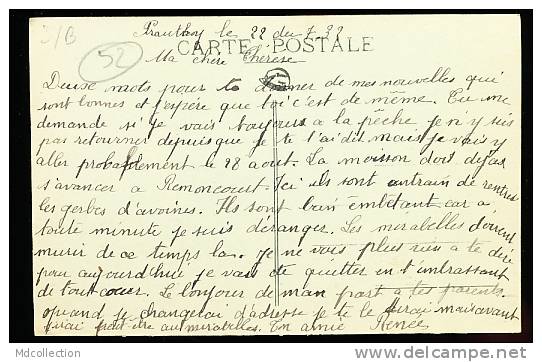 Prauthoy le 22 du 7-32
CARTE POSTALE
52
Ma chère Thérèse
Deux mots pour te donner de mes nouvelles qui
sont bonnes et j'espère que toi c'est de même. Tu me
demande si je vais toujours a la pêche je n'y suis
pas retourner depuis que je te l'ai dit mais je vais y
aller probablement le 28 aout. La moisson doit dejas
s'avancer a Remoncourt. Ici ils sont autrain de rentrer
les gerbes d'avoines. Ils sont bien embêtant car a
toute minute je suis déranger. Les mirabelles doivent
murir de ce temps la. Je ne vois plus rien a te dire
pour aujourd'hui je vais de quitter en t'embrassant
de tout coeur. Le bonjour de man part a tes parents
quand je changerai d'adresse je te le dirai mais avant
j'irai peut être au mirabelles. Ton amie Renée
delcampe.net
Mdcollection